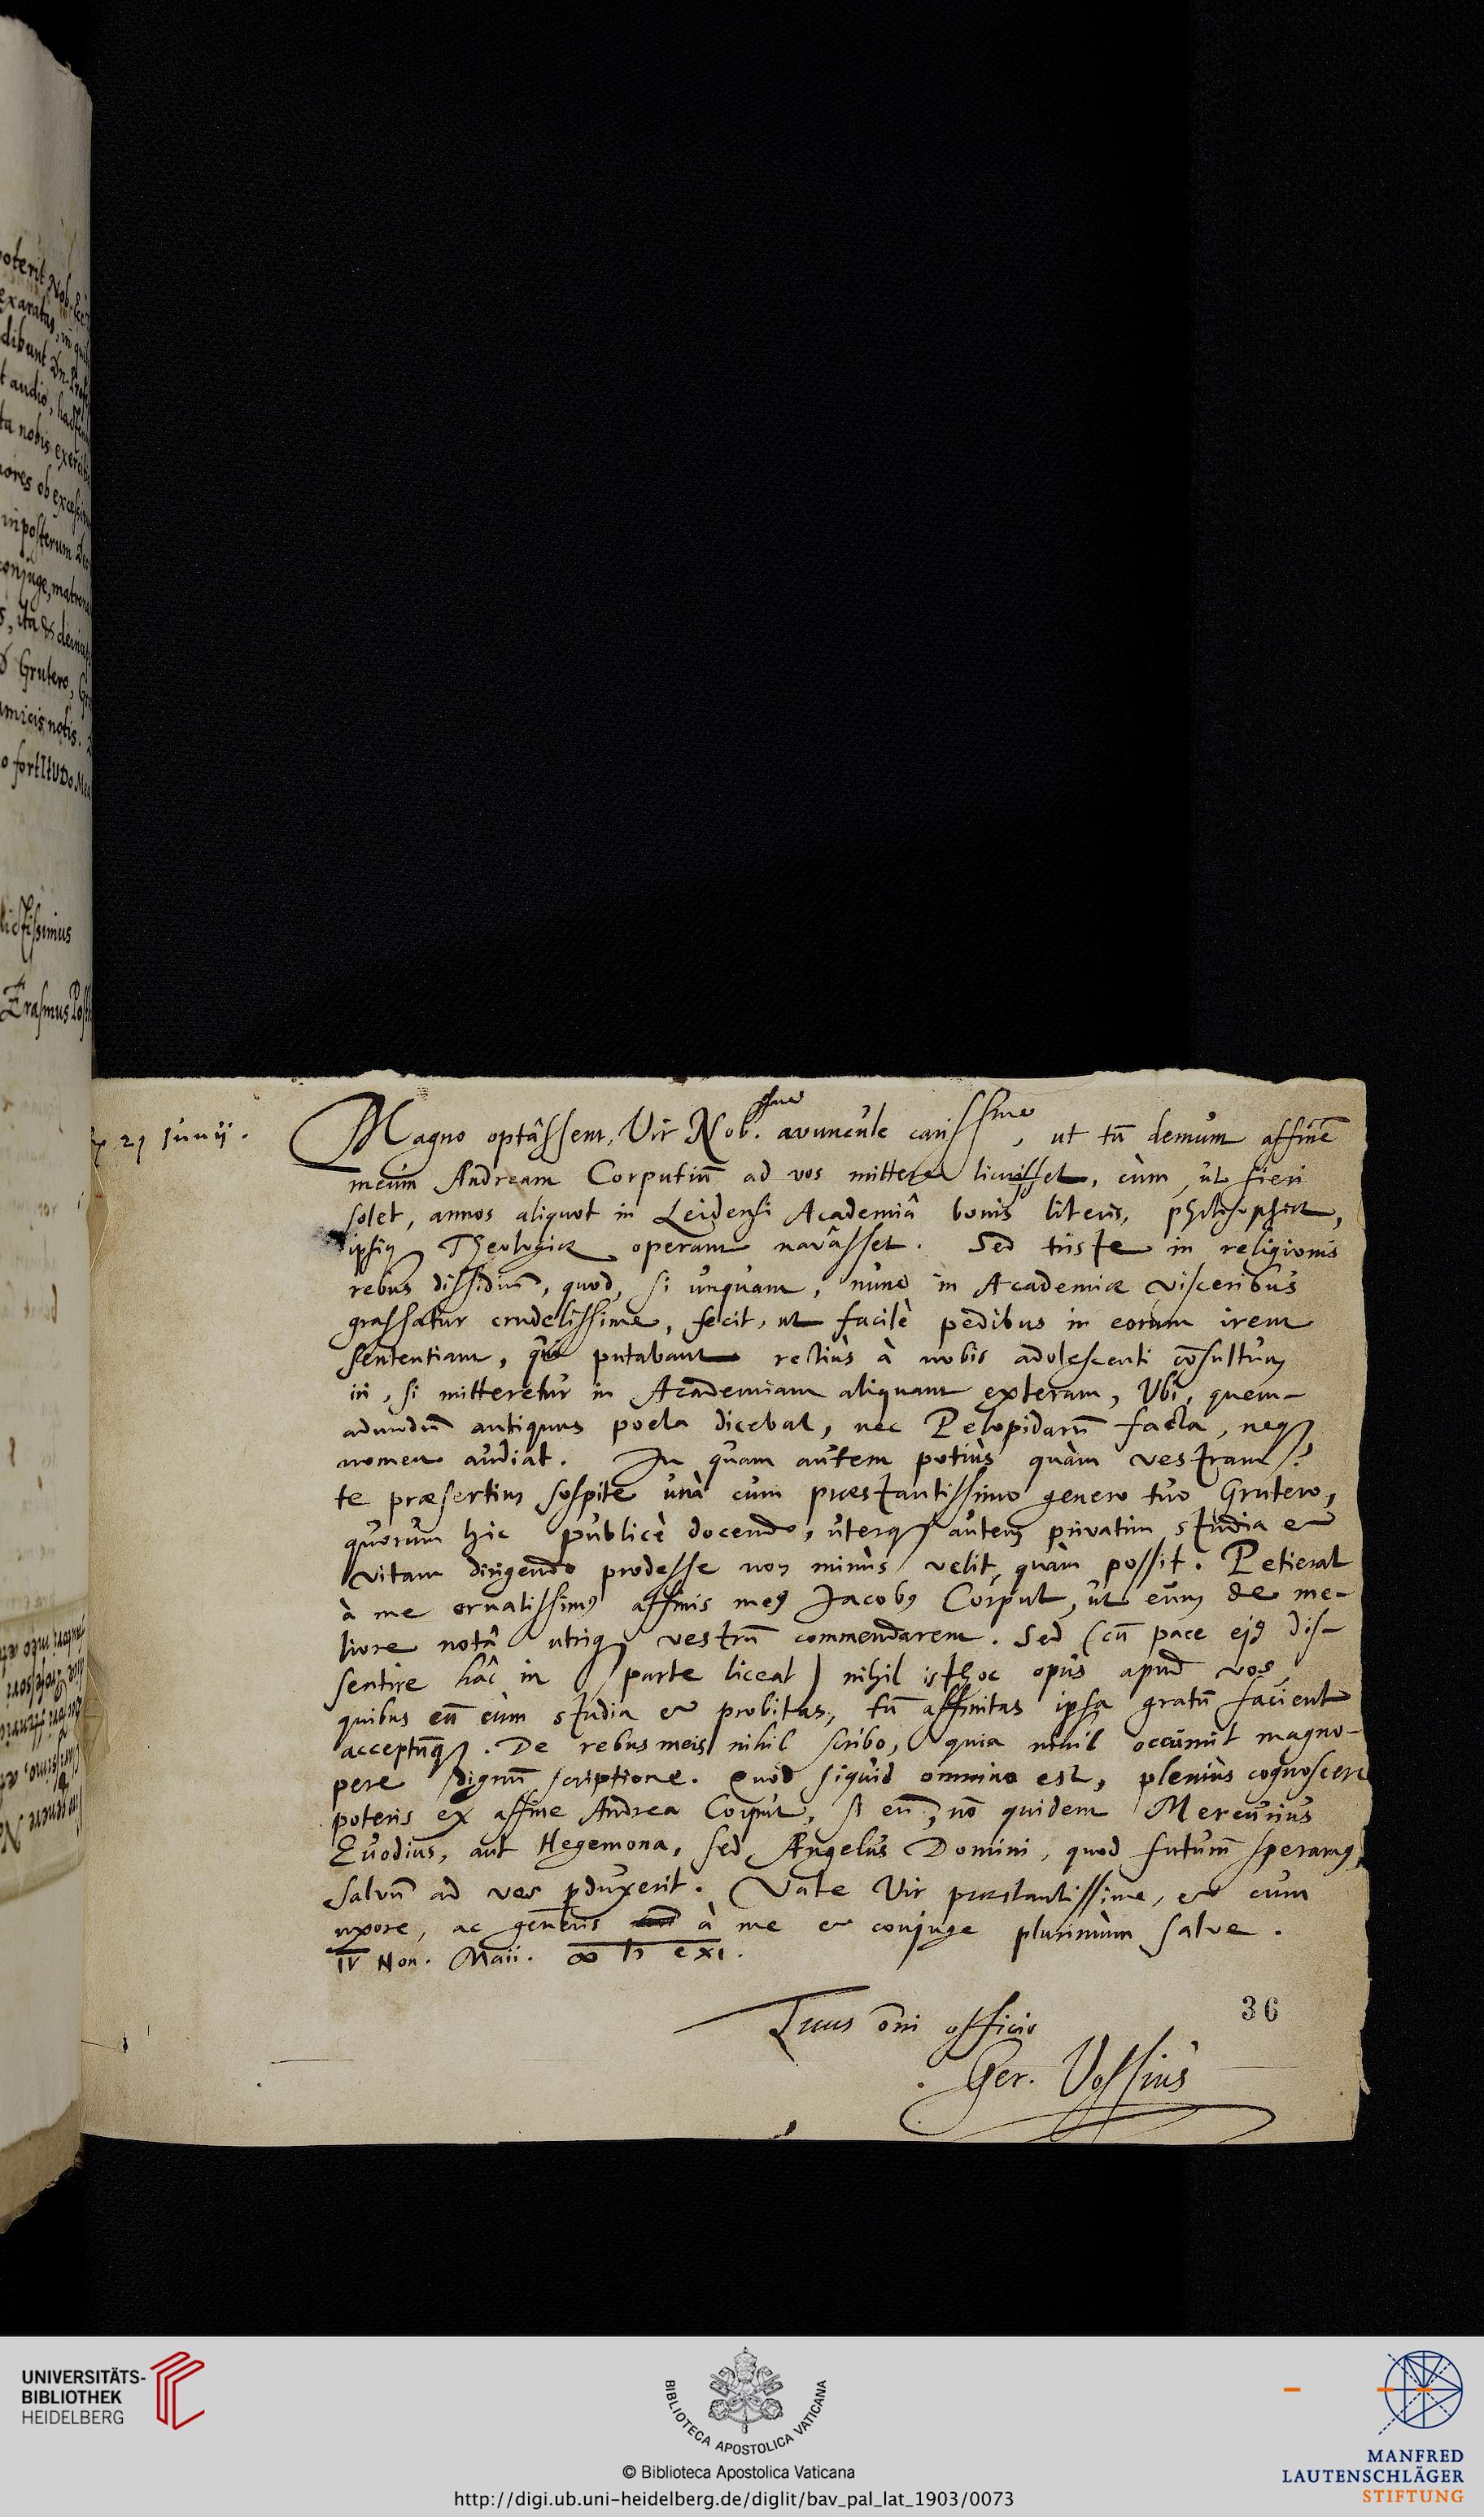 21 Junij.
Magno optâssem, Vir Nob.ssime avuncule carissime, ut tū demum affinē
meum Andream Corputiū ad vos mittere licuisset, cùm, ut fieri
solet, annos aliquot in Leidensi Academiâ bonis literis, philosophiæ,
ipsiq; Theologiæ operam navâsset. Sed triste in religionis
rebus dissidiū, quod, si unquam, nunc in Academiæ visceribus
grassatur crudelissime, fecit, ut facilè pedibus in eorum irem
sententiam, qui putabant rectiùs à nobis adolescenti cōsultum
iri, si mitteretur in Academiam aliquam exteram, Ubi, quem-
admodū antiquus poeta dicebat, nec Pelopidarū facta, neq;
nomen audiat. In quam autem potiùs quàm vestram?
te præsertim sospite unà cum præstantissimo genero tuo Grutero,
quorum hic publicè docendo, uterq; autem privatim studia et
vitam dirigendo prodesse non minùs velit, quàm possit. Petierat
à me ornatissimus affinis meus Jacobus Corput, ut eum de me-
liore notâ utriq; vestrū commendarem. Sed (cū pace ejus dis-
sentire hâc in parte liceat) nihil isthoc opus apud vos,
quibus eū cùm studia et probitas, tū affinitas ipsa gratū facient
acceptūq;. De rebus meis nihil scribo, quia nihil occurrit magno-
pere dignū scriptione. Quòd siquid omnino est, pleniùs cognoscere
poteris ex affine Andrea Corput, si eū, nō quidem Mercurius
Evodius, aut Hegemona, sed Angelus Domini, quod futurū speramus,
salvū ad vos pduxerit. Vale Vir præstantissime, et cum
uxore, ac generis à me et conjuge plurimùm salve.
IV Non. Maii. ꝏ IↃ CXI.
Tuus ōni officio
36
Ger. Vossius
Grutero,
amicis notis.
Erasmus
UNIVERSITÄTS-
BIBLIOTHEK
HEIDELBERG
BIBLIOTECA APOSTOLICA VATICANA
© Biblioteca Apostolica Vaticana
http://digi.ub.uni-heidelberg.de/diglit/bav_pal_lat_1903/0073
MANFRED
LAUTENSCHLÄGER
STIFTUNG